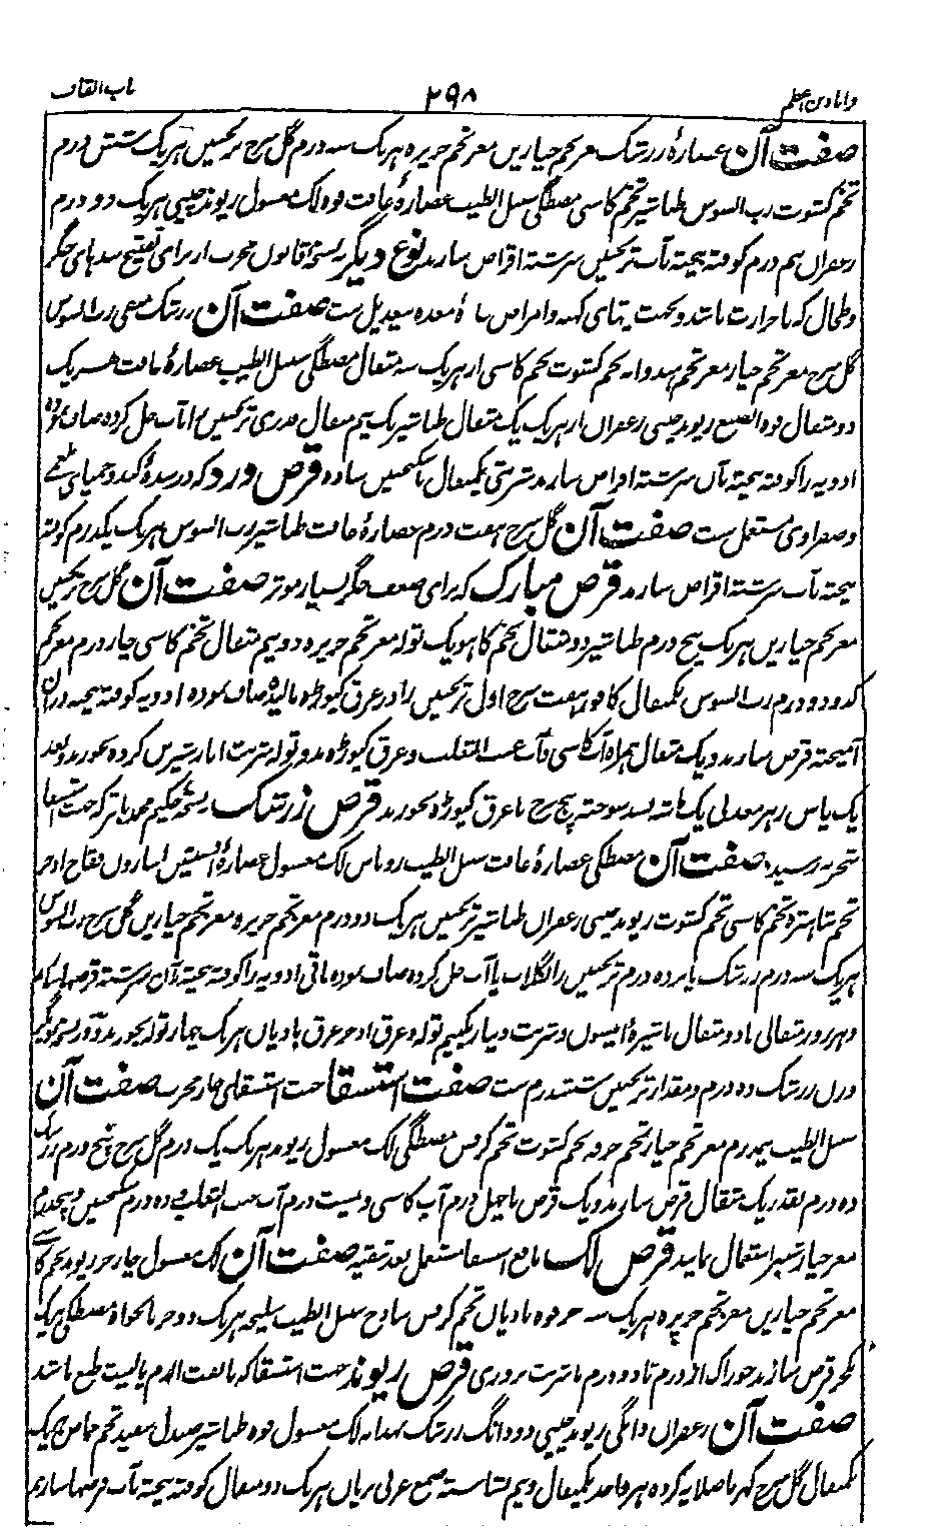 باب القاف ۲۹۸
صفت آن عصارۂ زرشک مغز تخم خیارین مغز تخم خربزہ ہریک سہ درم گل سرخ ترنجبین ہریک شش درم
تخم کشوت رب السوس طباشیر تخم کاسنی مصطگی سنبل الطیب عصارۂ غافت فوہ لک مغسول ریوند چینی ہریک دو درم
زعفران نیم درم کوفتہ بیختہ بآب ترنجبین سرشتہ اقراص سازند نوع دیگر بنسخۂ قانون مجرب از برای تفتیح سدہای جگر
و طحال کہ با حرارت باشد و بجہت تپہای کہنہ و امراض معدہ بیعدیل ست صفت آن زرشک منقی رب السوس
گل سرخ مغز تخم خیار مغز تخم ہندوانہ تخم کشوت تخم کاسنی از ہریک سہ مثقال مصطگی سنبل الطیب عصارۂ غافت ہریک
دو مثقال فوہ الصبغ ریوند چینی زعفران از ہریک یک مثقال طباشیر یک نیم مثقال ترنجبین را بآب حل کردہ صاف نمودہ
ادویہ را کوفتہ بیختہ بآن سرشتہ اقراص سازند شربتی یکمثقال با سکنجبین سادہ قرص ورد کہ درد سدۂ کبد و حمیای بلغمی
و صفراوی مستعمل ست صفت آن گل سرخ ہفت درم عصارۂ غافت طباشیر رب السوس ہریک یکدرم کوفتہ
بیختہ بآب سرشتہ اقراص سازند قرص مبارک کہ برای ضعف جگر بسیار موثر صفت آن گل سرخ ترنجبین
مغز تخم خیارین ہریک پنج درم طباشیر دو مثقال تخم کاہو یک تولہ مغز تخم خربزہ دو نیم مثقال تخم کاسنی چار درم مغز تخم
کدو دو درم رب السوس یکمثقال کافور ہفت سرخ اول ترنجبین را در عرق کیوڑہ مالیدہ صاف نمودہ ادویہ کوفتہ بیختہ دران
آمیختہ قرص سازند و یک مثقال ہمراہ آب کاسنی و آب عنب الثعلب و عرق کیوڑہ و دو تولہ شربت انار شیرین کردہ بخورند و بعد
یک پاس زہر معدنی یک ماشہ بسد سوختہ پنج سرخ با عرق کیوڑہ بخورند قرص زرشک بنسخۂ حکیم محمد باقر کہ جہت استسقا
بتجربہ رسیدہ صفت آن مصطگی عصارۂ غافت سنبل الطیب روناس لک مغسول عصارۂ افسنتین اسارون فقاح اذخر
تخم شاہترہ تخم کاسنی تخم کشوت ریوند چینی زعفران طباشیر ترنجبین ہریک دو درم مغز تخم خربزہ مغز تخم خیارین گل سرخ رب السوس
ہریک سہ درم زرشک پانزدہ درم ترنجبین را بگلاب یا آب حل کردہ صاف نمودہ باقی ادویہ را کوفتہ بیختہ بآن سرشتہ قرصہا سازند
و ہر روز مثقالی تا دو مثقال با شیرۂ انیسون و شربت دینار یکنیم تولہ و عرق اذخر عرق بادیان ہریک چہار تولہ بخورند و در نسخہ دیگر
وزن زرشک دہ درم و مقدار ترنجبین شصت درم ست صفت استسقا جہت استسقای حار مجرب صفت آن
سنبل الطیب نیمدرم مغز تخم خیار تخم خرفہ تخم کشوت تخم کرفس مصطگی لک مغسول ریوند ہریک یک درم گل سرخ پنج درم زرشک
دہ درم بقدر یک مثقال قرص سازند و یک قرص با چہل درم آب کاسنی و بیست درم آب عنب الثعلب و دہ درم سکنجبین و پنجدرم
مغز خیارشنبر استعمال نماید قرص لک نافع استسقا مستعمل بعد تنقیہ صفت آن لک مغسول چار جزو ریوند تخم کاسنی
مغز تخم خیارین مغز تخم خربزہ ہریک سہ جزو بادیان تخم کرفس ساذج سنبل الطیب سلیخہ ہریک دو جزو مصطگی ہریک
یکجزو قرص سازند خوراک از درم تا دو درم با شربت بزوری قرص ریوند جہت استسقا کہ با نفث الدم یا لینت طبع باشد
صفت آن زعفران دانگی ریوند چینی دو دانگ زرشک بہدانہ لک مغسول فوہ طباشیر صندل سفید تخم حماض ہریک
یکمثقال گل سرخ کہربا صلایہ کردہ ہر واحد یکمثقال و نیم نشاستہ صمغ عربی بریان ہریک دو مثقال کوفتہ بیختہ بآب قرصہا سازند